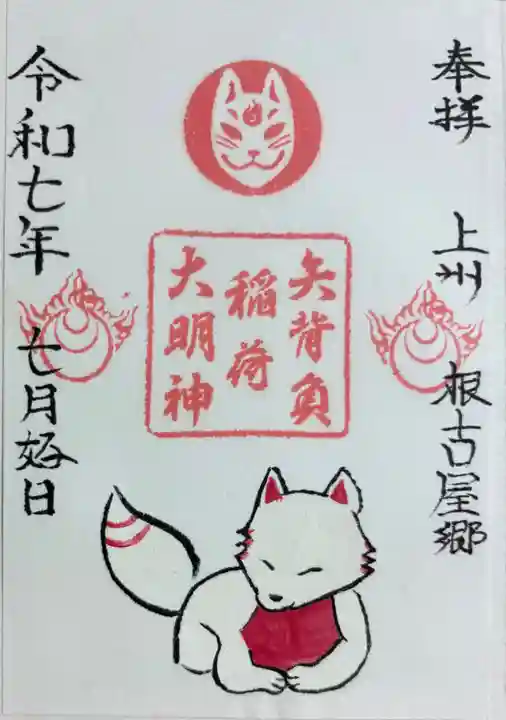 奉拝 上州 根古屋郷
矢背負
稲荷
大明神
令和七年 七月好日